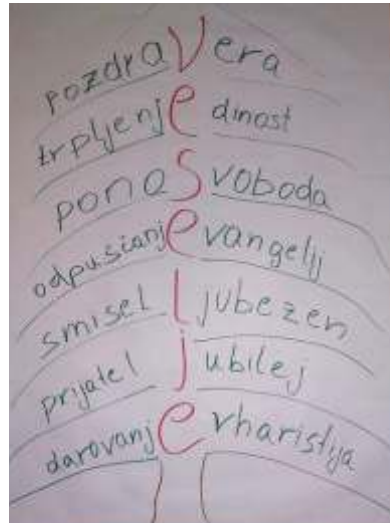 pozdra V era
trpljenj e dinost
pono S voboda
odpuščanj e vangelij
smisel l jubezen
prijatel j ubilej
darovanj e vharistija